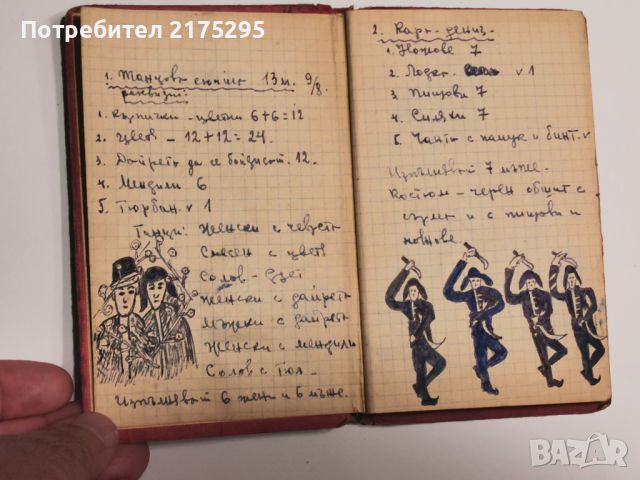 Потребител 2175295
1. Танцова сюита 13 м. 9/8.
реквизит:
1. Кърпички - цветни 6+6=12
2. Цветя - 12+12=24.
3. Дайрета да се боядисат. 12.
4. Мендили 6
5. Тюрбан. v 1
Танци: Женски с
Смесен с цветя
Солов - Дует
Женски с дайрета
Мъжки с дайрета
Женски с мендили
Солов с Тюл -
Изпълняват 6 жени и 6 мъже.
2. Кара - дениз.
1. Ножове 7
2. Лодка v 1
3. Пищови 7
4. Силяхи 7
5. Чанта с памук и бинт. v
Изпълняват 7 мъже.
Костюм - черен обшит с
сърма и с пищови и
ножове.
BAZAR